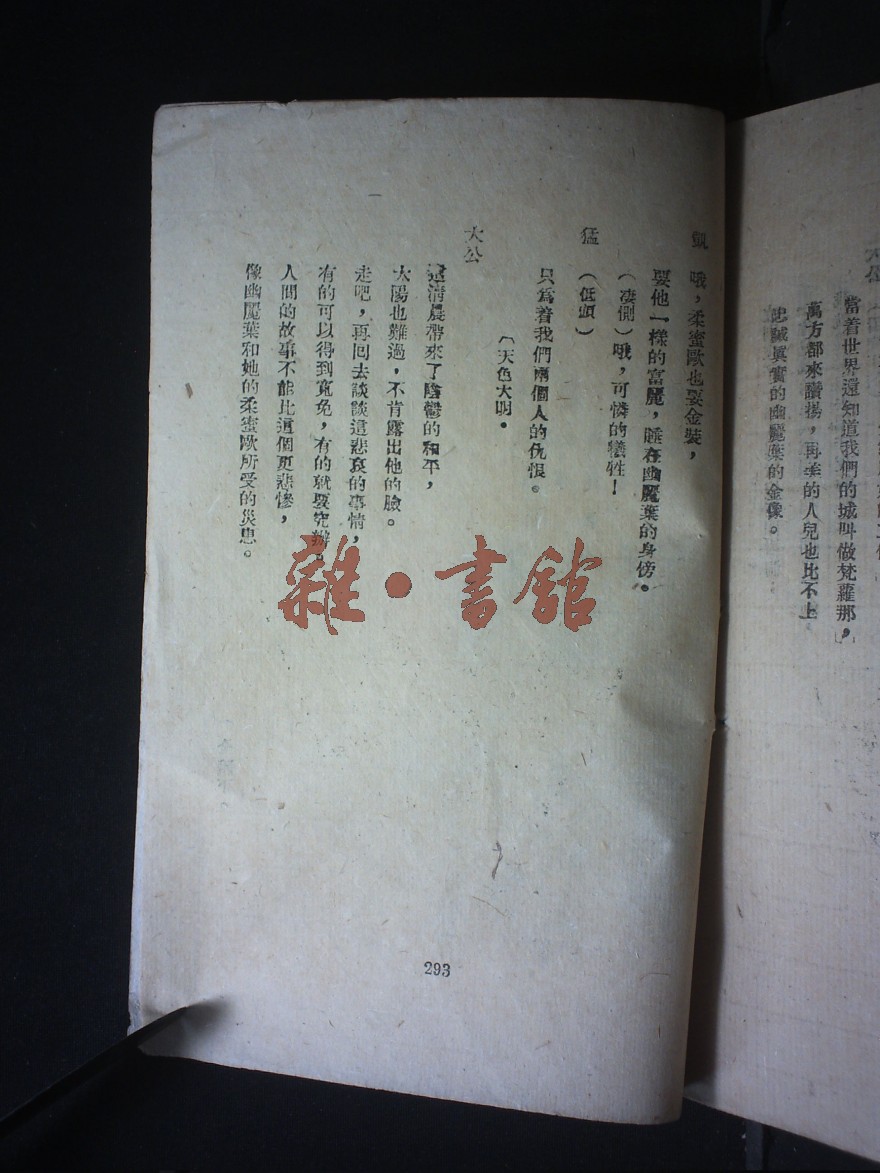 當着世界還知道我們的城叫做梵蘿那,
萬方都來讚揚,再美的人兒也比不上
忠誠眞實的幽麗葉的金像。
凱 哦,柔蜜歐也要金裝,
要他一樣的富麗,睡在幽麗葉的身傍。
(凄惻)哦,可憐的犧牲!
猛 (低頭)
只爲着我們兩個人的仇恨。
(天色大明。
大公
這清晨帶來了陰鬱的和平,
太陽也難過,不肯露出他的臉。
走吧,再回去談談這悲哀的事情,
有的可以得到寬免,有的就要究辦。
人間的故事不能比這個更悲慘,
像幽麗葉和她的柔蜜歐所受的災患。
雜·書館
293